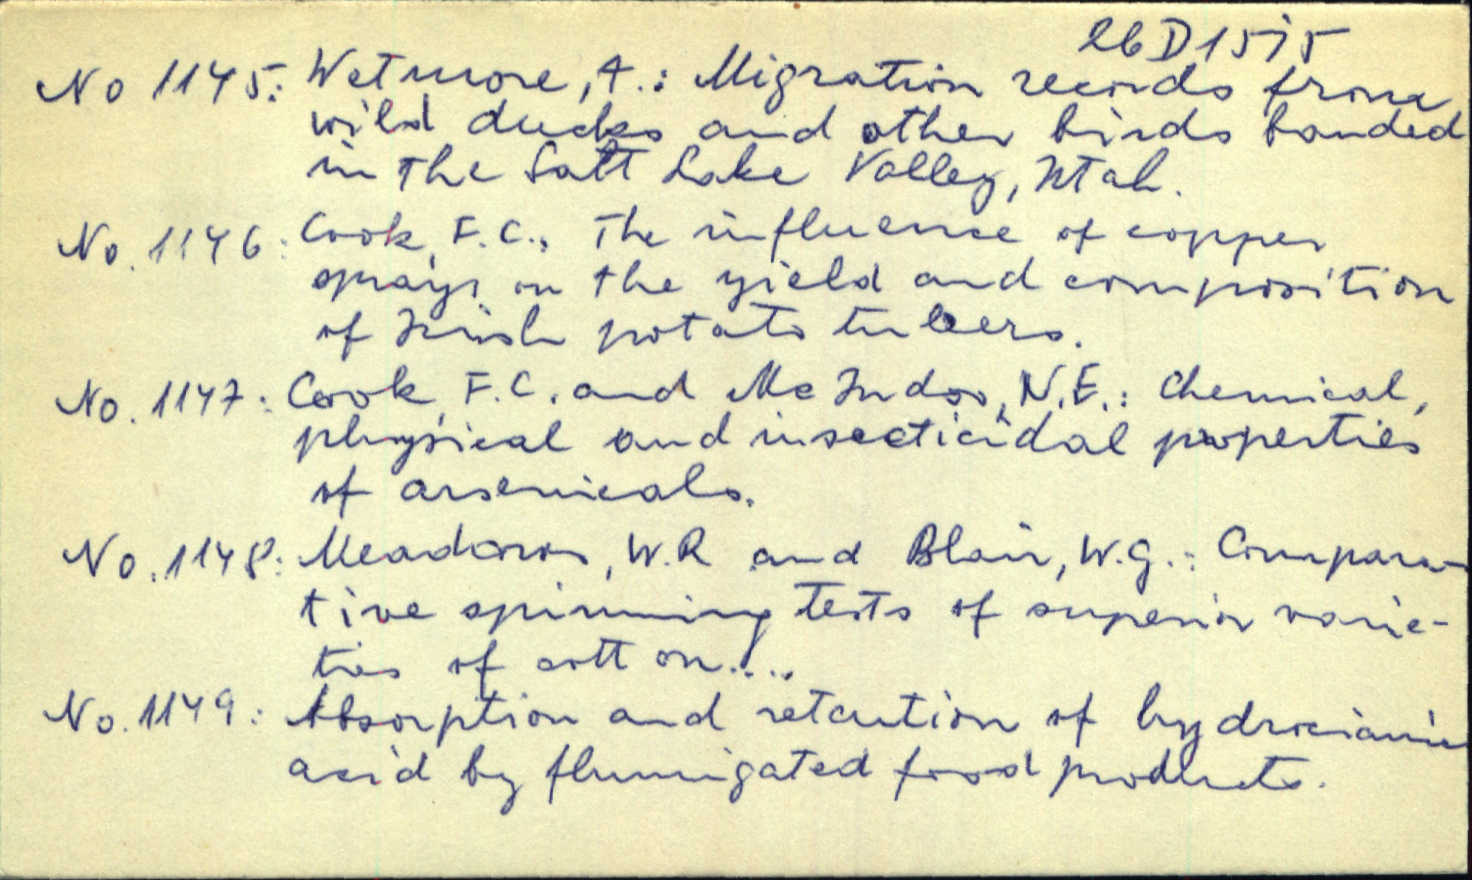 26D15/5
No 1145: Wetmore, A.: Migration records from
wild ducks and other birds banded
in the Salt Lake Valley, Utah.
No. 1146: Cook, F.C., The influence of copper
sprays on the yield and composition
of Irish potato tubers.
No. 1147: Cook, F.C. and McIndoo, N.E.: Chemical,
physical and insecticidal properties
of arsenicals.
No. 1148: Meadows, W.R and Blair, W.G.: Compara-
tive spinning tests of superior varie-
ties of cotton....
No. 1149: Absorption and retention of hydrocianic
acid by flumigated food products.